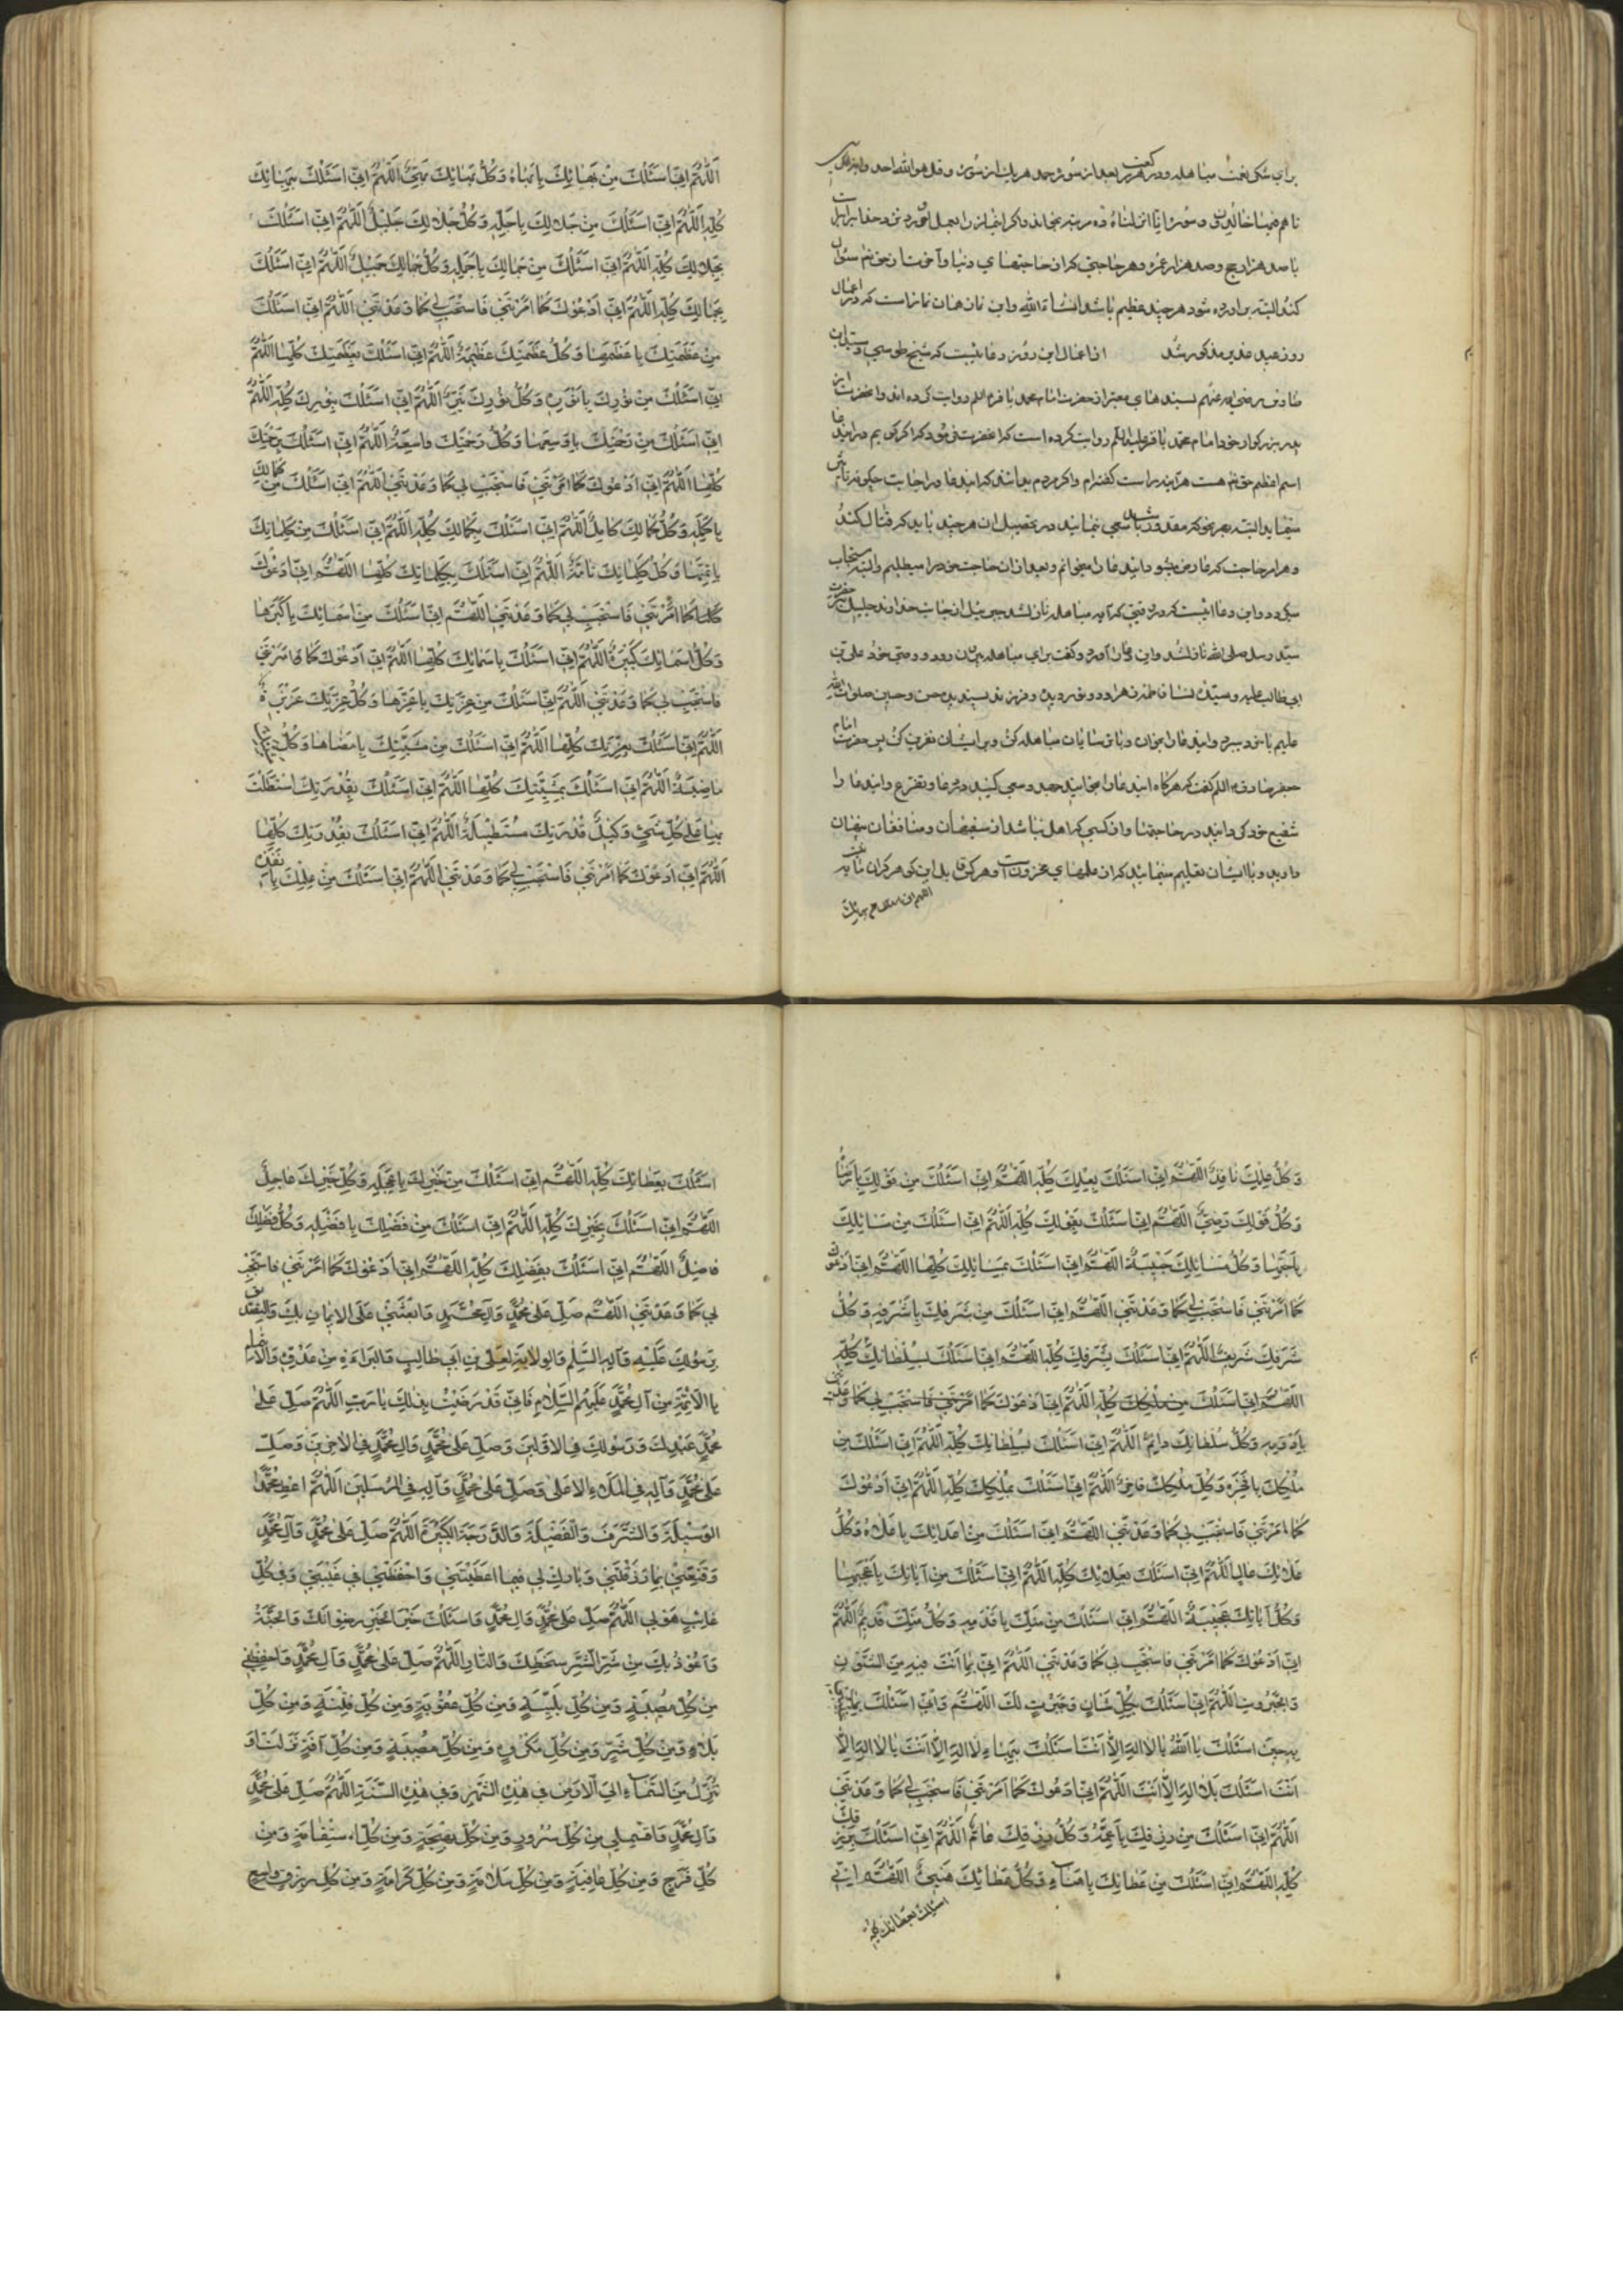 برای شکر نعمت مباهله و در هر رکعت بعد از سوره حمد هر یک از سوره قل هو الله احد و آیة الکرسی
تا هم فیها خالدون و سوره انا انزلناه ده مرتبه بخواند و اکر این نماز را بعمل آورد نزد حقتعالی برابر است
با صد هزار حج و صد هزار عمره و هر حاجتی که از حاجتهای دنیا و آخرت از حق تعالی سئوال
کند البته بر آورده شود هر چند عظیم باشد انشاء الله و این نماز همان نماز است که در اعمال
روز عید غدیر مذکور شد از اعمال این روز دعائیست که شیخ طوسی و سید ابن
طاوس رضی الله عنهم بسندهای معتبر از حضرت امام محمد باقر علیه السلم روایت کرده اند و آنحضرت از
پدر بزرکوار خود امام محمد باقر علیه السلم روایت کرده است که آنحضرت فرمود که اکر کویم در این دعا
اسم اعظم حق تعالی هست هر آینه راست کفته ام و اکر مردم بدانند که این دعا در اجابت چکونه تأثیر
مینماید البته بهر نحو که مقدور باشد سعی نمایند در تحصیل آن هر چند باید که قتال کنند
و هر امر حاجت که مرا رو میدهد این دعا را میخوانم و بعد از آن حاجت خود را میطلبم و البته مستجاب
میکردد و این دعائیست که در وقتی که آیه مباهله نازل شد جبرئیل از جانب خداوند جلیل بر حضرت
سید رسل صلی الله نازل شد و این دعا را آورد و کفت برای مباهله بیرون رو و وصی خود علی بن
ابی طالب علیه و سیدة نسا فاطمه زهرا و دو نور دیده و فرزند پسندیده حسن و حسین صلوات الله
علیهم با خود ببر و این دعا را بخوان و با ترسایان مباهله کن و بر ایشان نفرین کن پس حضرت امام
جعفر صادق علیه السلم کفت که هرکاه این دعا را بخوانید جهد و سعی کنید در دعا و تضرع و این دعا را
شفیع خود کردانید در حاجتها و از کسی که اهل نباشد از سفیهان و منافقان پنهان
دارید و با ایشان تعلیم منمائید که از علمهای مخزونست
اللهم انی اسئلک من بهائک
اَللّٰهُمَّ اِنّى اَسْئَلُكَ مِنْ بَهَائِكَ بِاَبْهَاهُ وَكُلُّ بَهَائِكَ بَهِىٌّ اَللّٰهُمَّ اِنّى اَسْئَلُكَ بِبَهَائِكَ
كُلِّهِ اَللّٰهُمَّ اِنّى اَسْئَلُكَ مِنْ جَلَالِكَ بِاَجَلِّهِ وَكُلُّ جَلَالِكَ جَلِيْلٌ اَللّٰهُمَّ اِنّى اَسْئَلُكَ
بِجَلَالِكَ كُلِّهِ اَللّٰهُمَّ اِنّى اَسْئَلُكَ مِنْ جَمَالِكَ بِاَجْمَلِهِ وَكُلُّ جَمَالِكَ جَمِيْلٌ اَللّٰهُمَّ اِنّى اَسْئَلُكَ
بِجَمَالِكَ كُلِّهِ اَللّٰهُمَّ اِنّى اَدْعُوكَ كَمَا اَمَرْتَنى فَاسْتَجِبْ لى كَمَا وَعَدْتَنى اَللّٰهُمَّ اِنّى اَسْئَلُكَ
مِنْ عَظَمَتِكَ بِاَعْظَمِهَا وَكُلُّ عَظَمَتِكَ عَظِيْمَةٌ اَللّٰهُمَّ اِنّى اَسْئَلُكَ بِعَظَمَتِكَ كُلِّهَا اَللّٰهُمَّ
اِنّى اَسْئَلُكَ مِنْ نُوْرِكَ بِاَنْوَرِهِ وَكُلُّ نُوْرِكَ نَيِّرٌ اَللّٰهُمَّ اِنّى اَسْئَلُكَ بِنُوْرِكَ كُلِّهِ اَللّٰهُمَّ
اِنّى اَسْئَلُكَ مِنْ رَحْمَتِكَ بِاَوْسَعِهَا وَكُلُّ رَحْمَتِكَ وَاسِعَةٌ اَللّٰهُمَّ اِنّى اَسْئَلُكَ بِرَحْمَتِكَ
كُلِّهَا اَللّٰهُمَّ اِنّى اَدْعُوكَ كَمَا اَمَرْتَنى فَاسْتَجِبْ لى كَمَا وَعَدْتَنى اَللّٰهُمَّ اِنّى اَسْئَلُكَ مِنْ كَمَالِكَ
بِاَكْمَلِهِ وَكُلُّ كَمَالِكَ كَامِلٌ اَللّٰهُمَّ اِنّى اَسْئَلُكَ بِكَمَالِكَ كُلِّهِ اَللّٰهُمَّ اِنّى اَسْئَلُكَ مِنْ كَلِمَاتِكَ
بِاَتَمِّهَا وَكُلُّ كَلِمَاتِكَ تَامَّةٌ اَللّٰهُمَّ اِنّى اَسْئَلُكَ بِكَلِمَاتِكَ كُلِّهَا اَللّٰهُمَّ اِنّى اَدْعُوْكَ
كَمَا اَمَرْتَنى فَاسْتَجِبْ لى كَمَا وَعَدْتَنى اَللّٰهُمَّ اِنّى اَسْئَلُكَ مِنْ اَسْمَائِكَ بِاَكْبَرِهَا
وَكُلُّ اَسْمَائِكَ كَبِيْرَةٌ اَللّٰهُمَّ اِنّى اَسْئَلُكَ بِاَسْمَائِكَ كُلِّهَا اَللّٰهُمَّ اِنّى اَدْعُوكَ كَمَا اَمَرْتَنى
فَاسْتَجِبْ لى كَمَا وَعَدْتَنى اَللّٰهُمَّ اِنّى اَسْئَلُكَ مِنْ عِزَّتِكَ بِاَعَزِّهَا وَكُلُّ عِزَّتِكَ عَزِيْزَةٌ
اَللّٰهُمَّ اِنّى اَسْئَلُكَ بِعِزَّتِكَ كُلِّهَا اَللّٰهُمَّ اِنّى اَسْئَلُكَ مِنْ مَشِيَّتِكَ بِاَمْضَاهَا وَكُلُّ
مَاضِيَةٌ اَللّٰهُمَّ اِنّى اَسْئَلُكَ بِمَشِيَّتِكَ كُلِّهَا اَللّٰهُمَّ اِنّى اَسْئَلُكَ بِقُدْرَتِكَ اسْتَطَلْتَ
بِهَا عَلٰى كُلِّ شَىْءٍ وَكُلُّ قُدْرَتِكَ مُسْتَطِيْلَةٌ اَللّٰهُمَّ اِنّى اَسْئَلُكَ بِقُدْرَتِكَ كُلِّهَا
اَللّٰهُمَّ اِنّى اَدْعُوكَ كَمَا اَمَرْتَنى فَاسْتَجِبْ لى كَمَا وَعَدْتَنى اَللّٰهُمَّ اِنّى اَسْئَلُكَ مِنْ عِلْمِكَ بِاَنْفَذِهِ
وَكُلُّ عِلْمِكَ نَافِذٌ اَللّٰهُمَّ اِنّى اَسْئَلُكَ بِعِلْمِكَ كُلِّهِ اَللّٰهُمَّ اِنّى اَسْئَلُكَ مِنْ قَوْلِكَ بِاَرْضَاهُ
وَكُلُّ قَوْلِكَ رَضِىٌّ اَللّٰهُمَّ اِنّى اَسْئَلُكَ بِقَوْلِكَ كُلِّهِ اَللّٰهُمَّ اِنّى اَسْئَلُكَ مِنْ مَسَائِلِكَ
بِاَحَبِّهَا وَكُلُّ مَسَائِلِكَ حَبِيْبَةٌ اَللّٰهُمَّ اِنّى اَسْئَلُكَ بِمَسَائِلِكَ كُلِّهَا اَللّٰهُمَّ اِنّى اَدْعُوكَ
كَمَا اَمَرْتَنى فَاسْتَجِبْ لى كَمَا وَعَدْتَنى اَللّٰهُمَّ اِنّى اَسْئَلُكَ مِنْ شَرَفِكَ بِاَشْرَفِهِ وَكُلُّ
شَرَفِكَ شَرِيْفٌ اَللّٰهُمَّ اِنّى اَسْئَلُكَ بِشَرَفِكَ كُلِّهِ اَللّٰهُمَّ اِنّى اَسْئَلُكَ بِسُلْطَانِكَ كُلِّهِ
اَللّٰهُمَّ اِنّى اَسْئَلُكَ مِنْ مُلْكِكَ كُلِّهِ اَللّٰهُمَّ اِنّى اَدْعُوكَ كَمَا اَمَرْتَنى فَاسْتَجِبْ لى كَمَا وَعَدْتَنى
بِاَدْوَمِهِ وَكُلُّ سُلْطَانِكَ دَائِمٌ اَللّٰهُمَّ اِنّى اَسْئَلُكَ بِسُلْطَانِكَ كُلِّهِ اَللّٰهُمَّ اِنّى اَسْئَلُكَ مِنْ
مُلْكِكَ بِاَفْخَرِهِ وَكُلُّ مُلْكِكَ فَاخِرٌ اَللّٰهُمَّ اِنّى اَسْئَلُكَ بِمُلْكِكَ كُلِّهِ اَللّٰهُمَّ اِنّى اَدْعُوْكَ
كَمَا اَمَرْتَنى فَاسْتَجِبْ لى كَمَا وَعَدْتَنى اَللّٰهُمَّ اِنّى اَسْئَلُكَ مِنْ عَلَائِكَ بِاَعْلَاهُ وَكُلُّ
عَلَائِكَ عَالٍ اَللّٰهُمَّ اِنّى اَسْئَلُكَ بِعَلَائِكَ كُلِّهِ اَللّٰهُمَّ اِنّى اَسْئَلُكَ مِنْ آيَاتِكَ بِاَعْجَبِهَا
وَكُلُّ آيَاتِكَ عَجِيْبَةٌ اَللّٰهُمَّ اِنّى اَسْئَلُكَ مِنْ مَنِّكَ بِاَقْدَمِهِ وَكُلُّ مَنِّكَ قَدِيْمٌ اَللّٰهُمَّ
اِنّى اَدْعُوكَ كَمَا اَمَرْتَنى فَاسْتَجِبْ لى كَمَا وَعَدْتَنى اَللّٰهُمَّ اِنّى بِمَا اَنْتَ فِيْهِ مِنَ الشُّئُوْنِ
وَالْجَبَرُوتِ اَللّٰهُمَّ اِنّى اَسْئَلُكَ بِكُلِّ شَأْنٍ وَجَبَرُوتٍ لَكَ اَللّٰهُمَّ وَاِنّى اَسْئَلُكَ بِمَا
اَسْئَلُكَ يَا اَللّٰهُ يَا لَا اِلٰهَ اِلَّا اَنْتَ اَسْئَلُكَ بِبَهَاءِ لَا اِلٰهَ اِلَّا اَنْتَ يَا لَا اِلٰهَ اِلَّا
اَنْتَ اَسْئَلُكَ بِلَا اِلٰهَ اِلَّا اَنْتَ اَللّٰهُمَّ اِنّى اَدْعُوكَ كَمَا اَمَرْتَنى فَاسْتَجِبْ لى كَمَا وَعَدْتَنى
اَللّٰهُمَّ اِنّى اَسْئَلُكَ مِنْ رِزْقِكَ بِاَعَمِّهِ وَكُلُّ رِزْقِكَ عَامٌّ اَللّٰهُمَّ اِنّى اَسْئَلُكَ بِرِزْقِكَ
كُلِّهِ اَللّٰهُمَّ اِنّى اَسْئَلُكَ مِنْ عَطَائِكَ بِاَهْنَاءِهِ وَكُلُّ عَطَائِكَ هَنِىءٌ اَللّٰهُمَّ اِنّى
اسئلک بعطائک کله
اَسْئَلُكَ بِعَطَائِكَ كُلِّهِ اَللّٰهُمَّ اِنّى اَسْئَلُكَ مِنْ خَيْرِكَ بِاَعْجَلِهِ وَكُلُّ خَيْرِكَ عَاجِلٌ
اَللّٰهُمَّ اِنّى اَسْئَلُكَ بِخَيْرِكَ كُلِّهِ اَللّٰهُمَّ اِنّى اَسْئَلُكَ مِنْ فَضْلِكَ بِاَفْضَلِهِ وَكُلُّ فَضْلِكَ
فَاضِلٌ اَللّٰهُمَّ اِنّى اَسْئَلُكَ بِفَضْلِكَ كُلِّهِ اَللّٰهُمَّ اِنّى اَدْعُوكَ كَمَا اَمَرْتَنى فَاسْتَجِبْ
لى كَمَا وَعَدْتَنى اَللّٰهُمَّ صَلِّ عَلٰى مُحَمَّدٍ وَآلِ مُحَمَّدٍ وَابْعَثْنى عَلَى الْاِيْمَانِ بِكَ وَالتَّصْدِيْقِ
بِرَسُوْلِكَ عَلَيْهِ وَآلِهِ السَّلَمُ وَالْوِلَايَةِ لِعَلِىِّ بْنِ اَبى طَالِبٍ وَالْبَرَاءَةِ مِنْ عَدُوِّهِ وَالْاِيْتِمَامِ
بِالْاَئِمَّةِ مِنْ آلِ مُحَمَّدٍ عَلَيْهِمُ السَّلَامُ فَاِنّى قَدْ رَضِيْتُ بِذٰلِكَ يَا رَبِّ اَللّٰهُمَّ صَلِّ عَلٰى
مُحَمَّدٍ عَبْدِكَ وَرَسُولِكَ فِى الْاَوَّلِيْنَ وَصَلِّ عَلٰى مُحَمَّدٍ وَآلِ مُحَمَّدٍ فِى الْآخِرِيْنَ وَصَلِّ
عَلٰى مُحَمَّدٍ وَآلِهِ فِى الْمَلَاءِ الْاَعْلٰى وَصَلِّ عَلٰى مُحَمَّدٍ وَآلِهِ فِى الْمُرْسَلِيْنَ اَللّٰهُمَّ اَعْطِ مُحَمَّدًا
الْوَسِيْلَةَ وَالشَّرَفَ وَالْفَضِيْلَةَ وَالدَّرَجَةَ الْكَبِيْرَةَ اَللّٰهُمَّ صَلِّ عَلٰى مُحَمَّدٍ وَآلِ مُحَمَّدٍ
وَقَنِّعْنى بِمَا رَزَقْتَنى وَبَارِكْ لى فِيْمَا اَعْطَيْتَنى وَاحْفَظْنى فى غَيْبَتى وَفى كُلِّ
غَائِبٍ هُوَ لى اَللّٰهُمَّ صَلِّ عَلٰى مُحَمَّدٍ وَآلِ مُحَمَّدٍ وَاَسْئَلُكَ خَيْرَ الْخَيْرِ رِضْوَانَكَ وَالْجَنَّةَ
وَاَعُوْذُ بِكَ مِنْ شَرِّ الشَّرِّ سَخَطِكَ وَالنَّارِ اَللّٰهُمَّ صَلِّ عَلٰى مُحَمَّدٍ وَآلِ مُحَمَّدٍ وَاحْفَظْنى
مِنْ كُلِّ مُصِيْبَةٍ وَمِنْ كُلِّ بَلِيَّةٍ وَمِنْ كُلِّ عُقُوْبَةٍ وَمِنْ كُلِّ فِتْنَةٍ وَمِنْ كُلِّ
بَلَاءٍ وَمِنْ كُلِّ شَرٍّ وَمِنْ كُلِّ مَكْرُوْهٍ وَمِنْ كُلِّ مُصِيْبَةٍ وَمِنْ كُلِّ آفَةٍ نَزَلَتْ اَوْ
تَنْزِلُ مِنَ السَّمَاءِ اِلَى الْاَرْضِ فى هٰذِهِ الشَّهْرِ وَفى هٰذِهِ السَّنَةِ اَللّٰهُمَّ صَلِّ عَلٰى مُحَمَّدٍ
وَآلِ مُحَمَّدٍ وَاقْسِمْ لى مِنْ كُلِّ سُرُورٍ وَمِنْ كُلِّ بَهْجَةٍ وَمِنْ كُلِّ اسْتِقَامَةٍ وَمِنْ
كُلِّ فَرَجٍ وَمِنْ كُلِّ عَافِيَةٍ وَمِنْ كُلِّ سَلَامَةٍ وَمِنْ كُلِّ كَرَامَةٍ وَمِنْ كُلِّ رِزْقٍ وَاسِعٍ